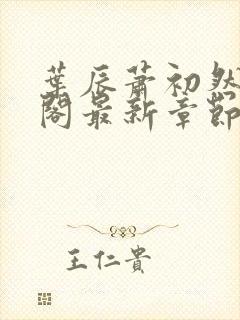 葉辰蕭初然
閣最新章節
王仁貴